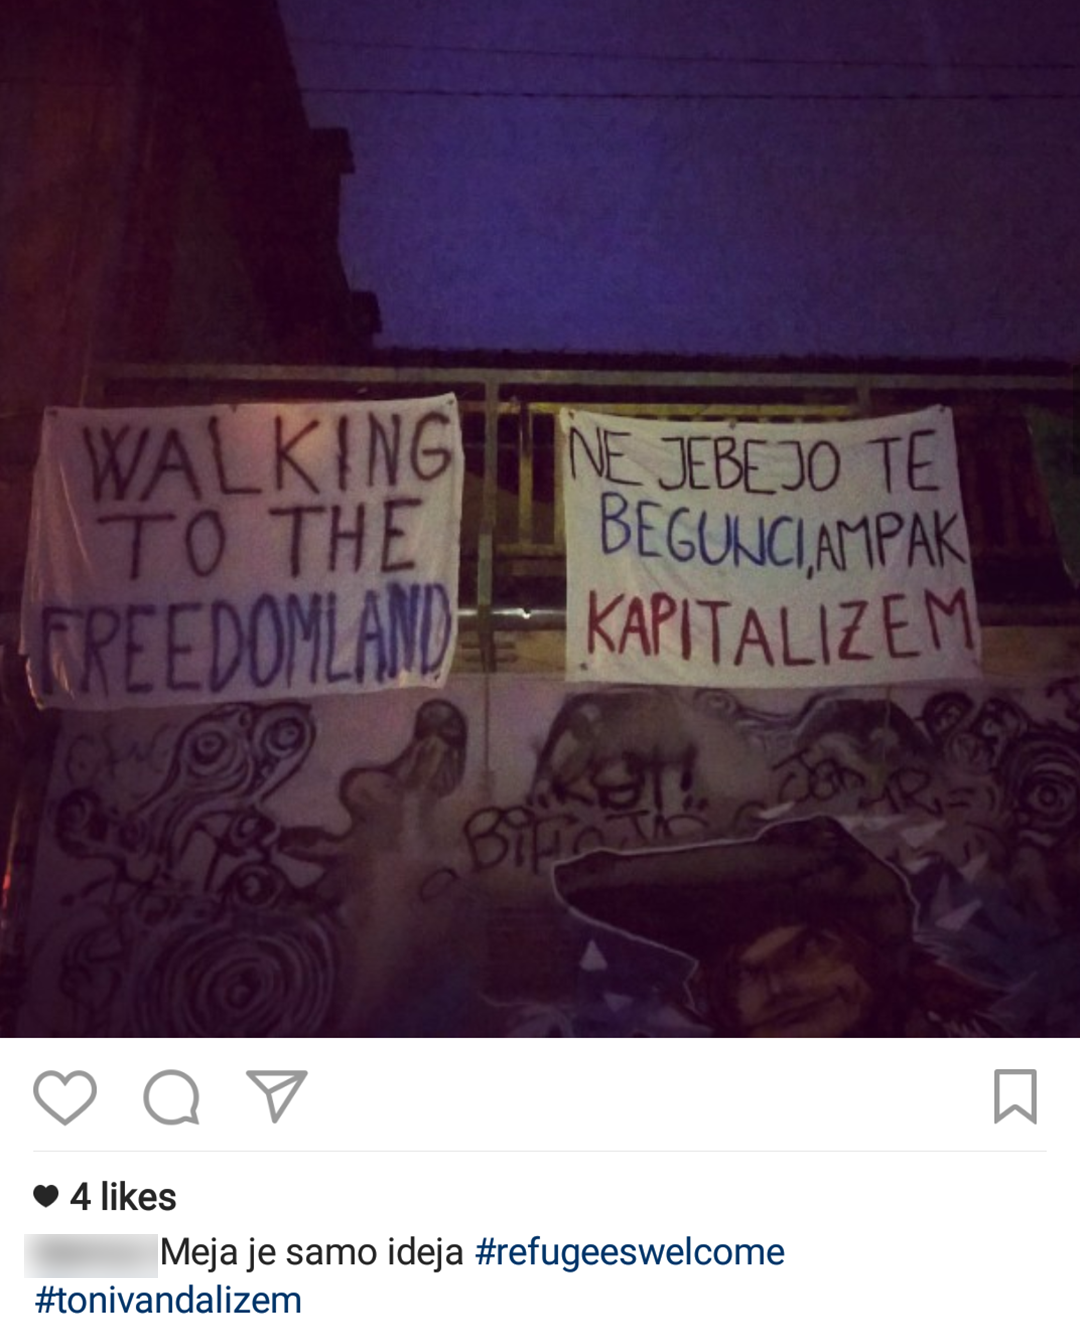 WALKING
TO THE
FREEDOMLAND
NE JEBEJO TE
BEGUNCI, AMPAK
KAPITALIZEM
4 likes
Meja je samo ideja #refugeeswelcome
#tonivandalizem